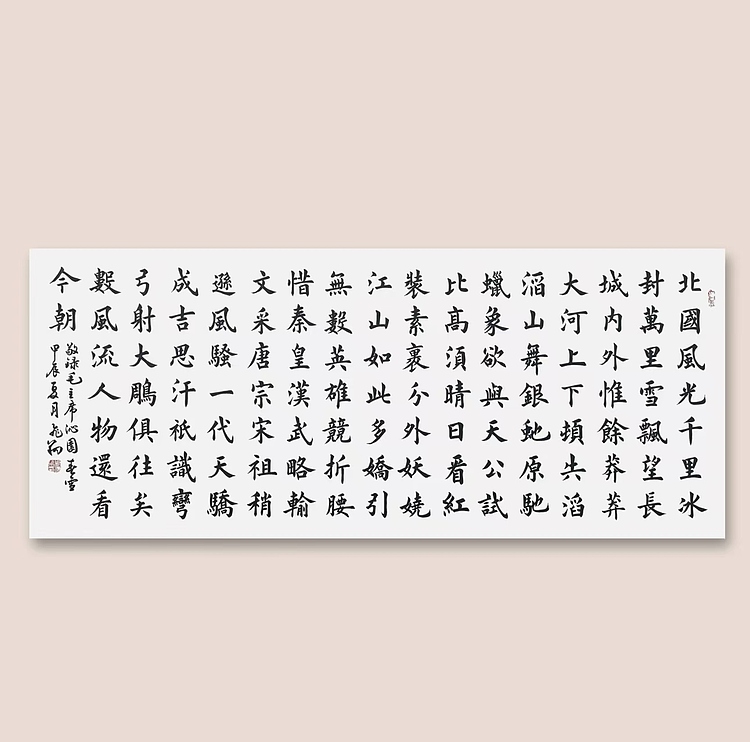 北國風光千里冰
封萬里雪飄望長
城内外惟餘莽莽
大河上下頓失滔
滔山舞銀蛇原馳
蠟象欲與天公試
比高須晴日看紅
裝素裹分外妖嬈
江山如此多嬌引
無數英雄競折腰
惜秦皇漢武略輸
文采唐宗宋祖稍
遜風騷一代天驕
成吉思汗祇識彎
弓射大鵰俱往矣
數風流人物還看
今朝
敬録毛主席沁園春雪
甲辰夏月